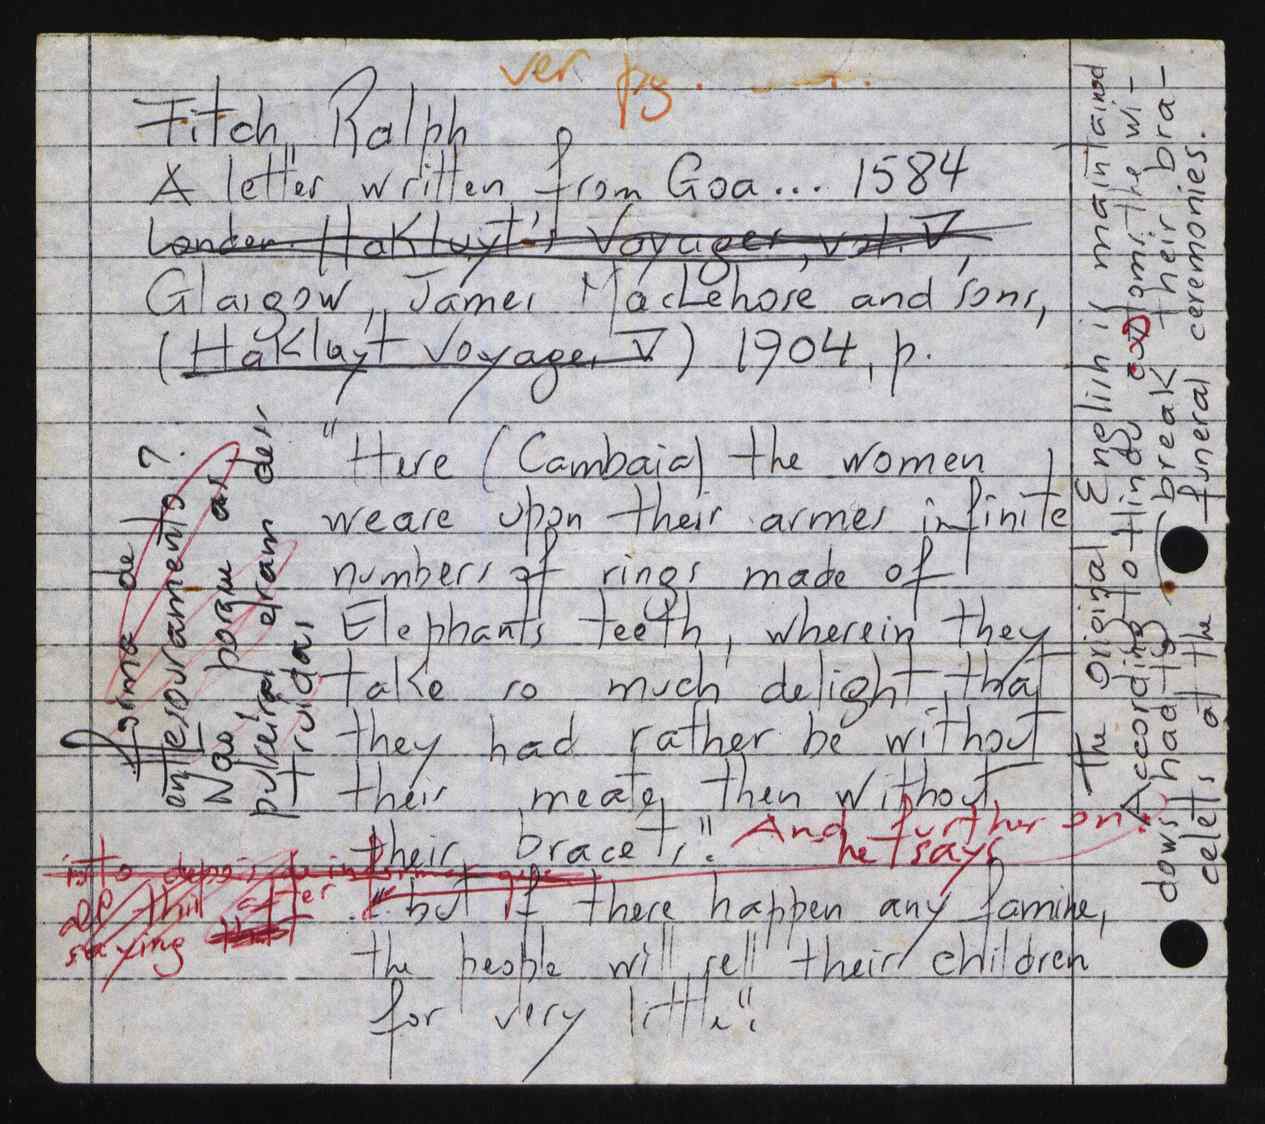 ver pg.
Fitch, Ralph
A letter written from Goa... 1584
London. Hakluyt's Voyages, vol. V,
Glasgow, James MacLehose and sons,
(Hakluyt Voyages V) 1904, p.
"Here (Cambaia) the women
weare upon their armes infinite
numbers of rings made of
Elephants teeth, wherein they
take so much delight, that
they had rather be without
their meate, then without
their bracets". And further on
he says
"but if there happen any famine,
the people will sell their children
for very little".
forma de
entesouramento?
Não porque as
pulseiras eram des
truidas
of this after
saying that
The original English is maintained
According to Hindu customs the wi-
dows had to break their bra-
celets at the funeral ceremonies.